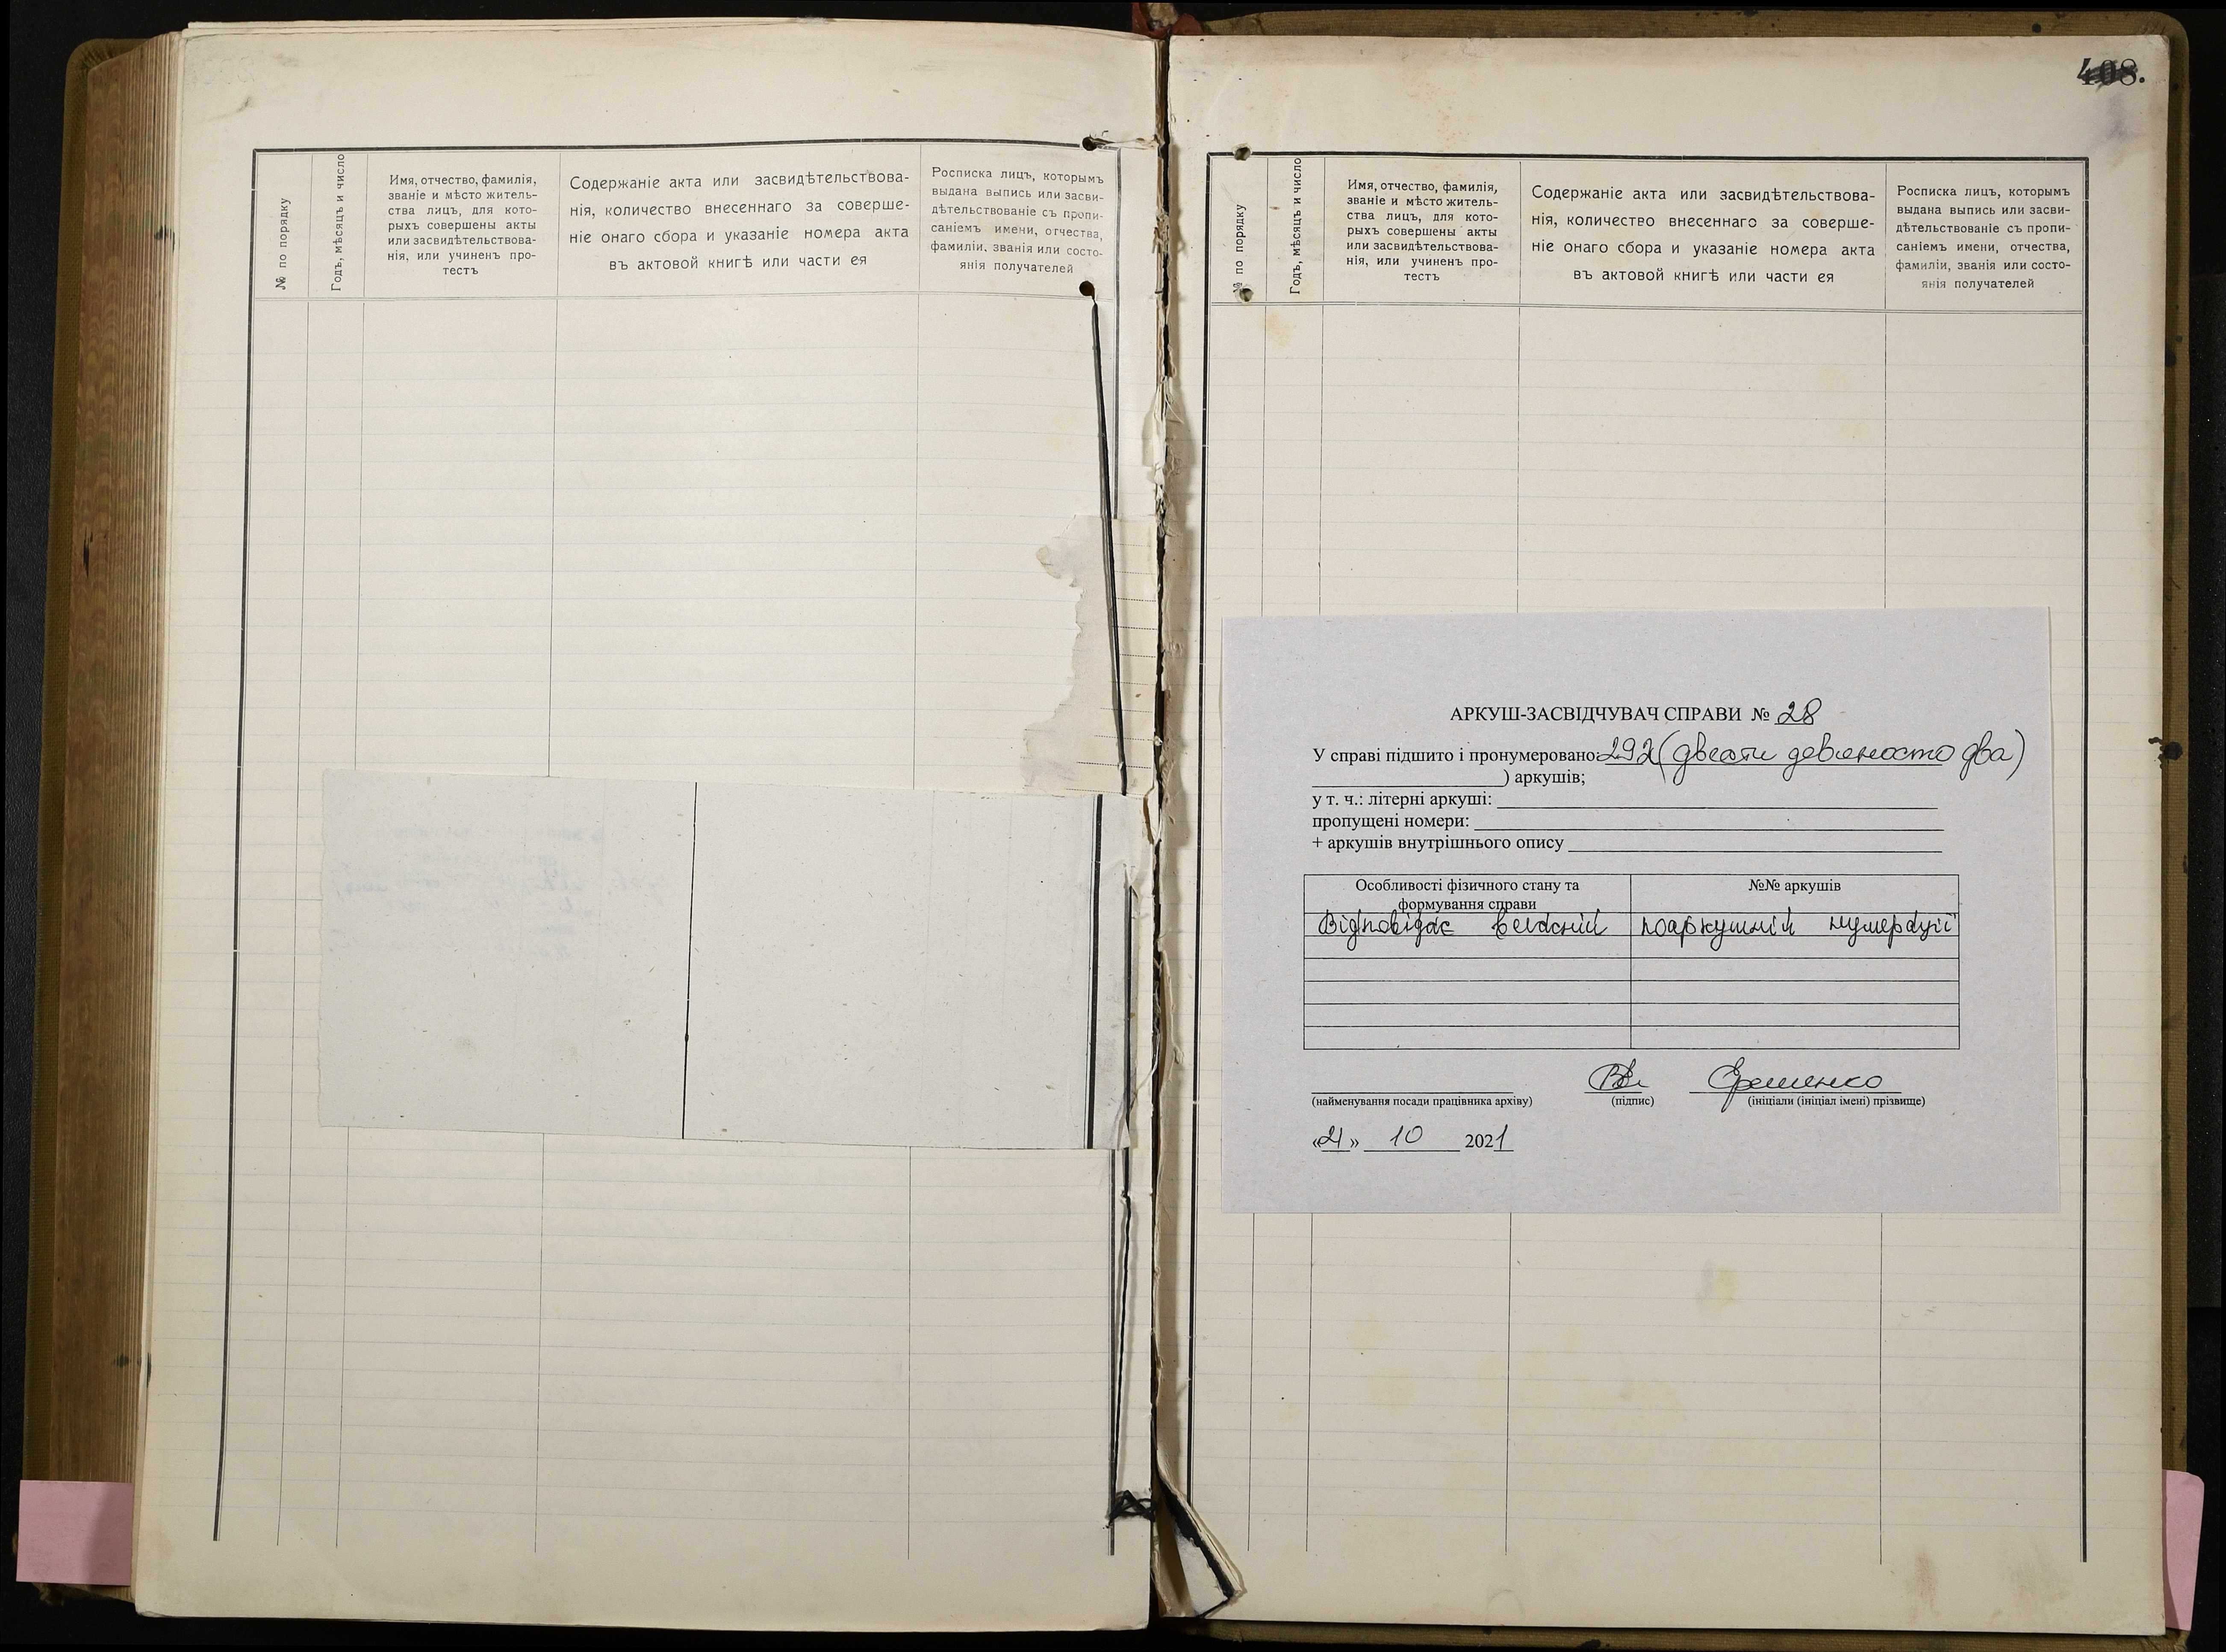 № по порядку
Годъ, мѣсяцъ и число
Имя, отчество, фамилія,
званіе и мѣсто житель-
ства лицъ, для кото-
рыхъ совершены акты
или засвидѣтельствова-
нія, или учиненъ про-
тестъ
Содержаніе акта или засвидѣтельствова-
нія, количество внесеннаго за соверше-
ніе онаго сбора и указаніе номера акта
въ актовой книгѣ или части ея
Росписка лицъ, которымъ
выдана выпись или засви-
дѣтельствованіе съ пропи-
саніемъ имени, отчества,
фамиліи, званія или состо-
янія получателей
408.
№ по порядку
Годъ, мѣсяцъ и число
Имя, отчество, фамилія,
званіе и мѣсто житель-
ства лицъ, для кото-
рыхъ совершены акты
или засвидѣтельствова-
нія, или учиненъ про-
тестъ
Содержаніе акта или засвидѣтельствова-
нія, количество внесеннаго за соверше-
ніе онаго сбора и указаніе номера акта
въ актовой книгѣ или части ея
Росписка лицъ, которымъ
выдана выпись или засви-
дѣтельствованіе съ пропи-
саніемъ имени, отчества,
фамиліи, званія или состо-
янія получателей
АРКУШ-ЗАСВІДЧУВАЧ СПРАВИ № 28
У справі підшито і пронумеровано: 292 (двести девяносто два)
) аркушів;
у т. ч.: літерні аркуші:
пропущені номери:
+ аркушів внутрішнього опису
Особливості фізичного стану та
формування справи
№№ аркушів
Відповідає власній поаркушній нумерації
Єрешенко
(найменування посади працівника архіву) (підпис) (ініціали (ініціал імені) прізвище)
«21» 10 2021